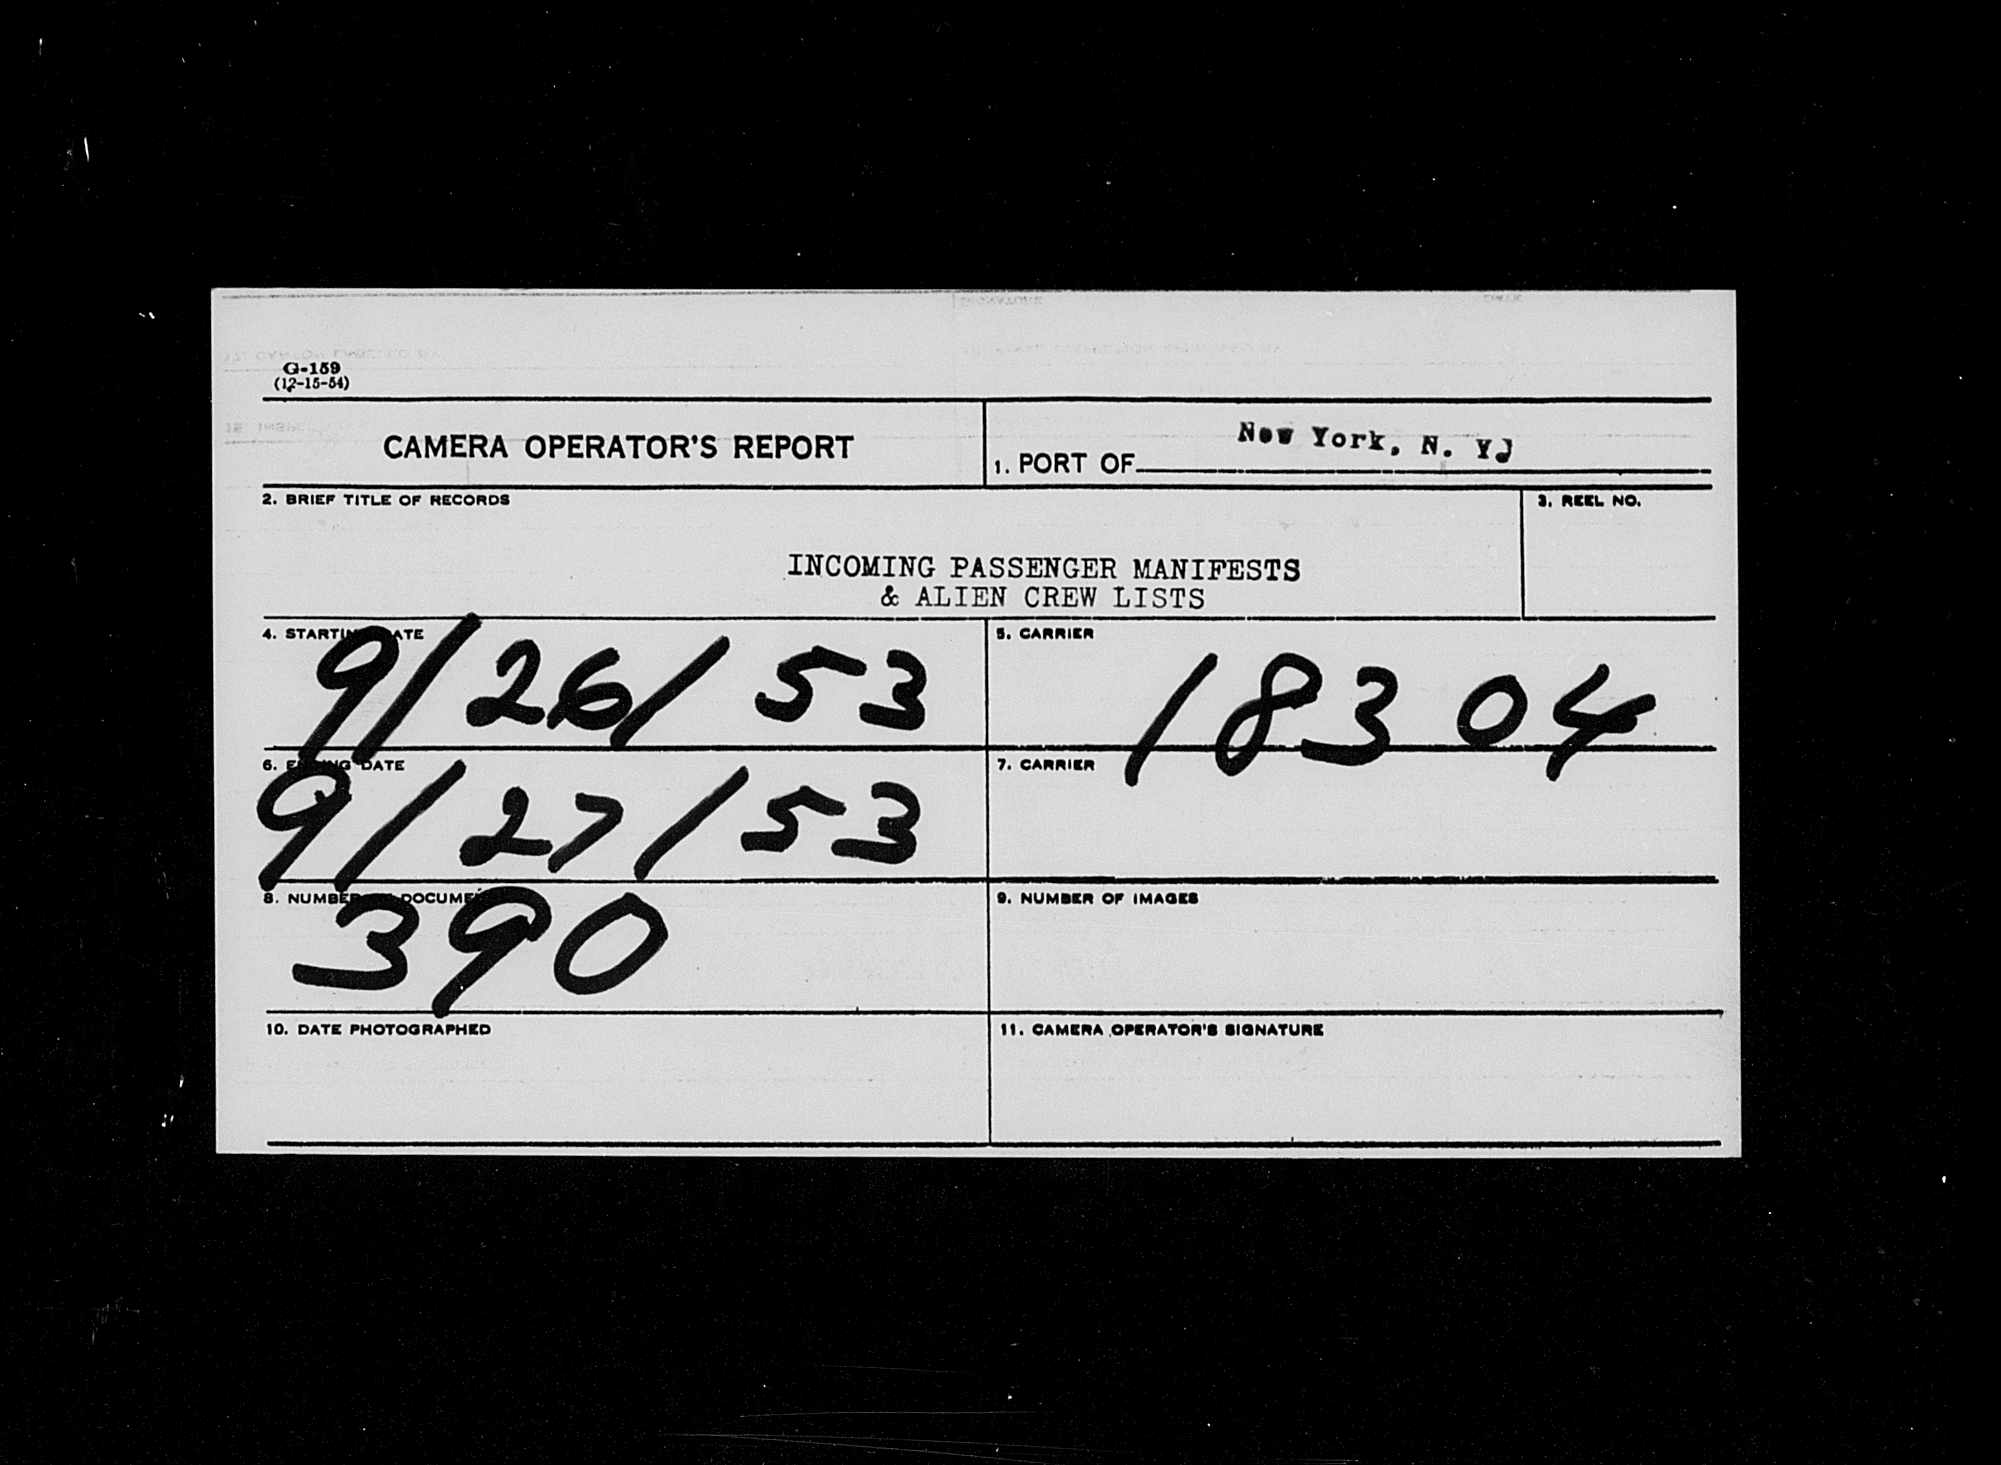 G-159
(12-15-54)
CAMERA OPERATOR'S REPORT
1. PORT OF New York, N. Y.
2. BRIEF TITLE OF RECORDS
3. REEL NO.
INCOMING PASSENGER MANIFESTS
& ALIEN CREW LISTS
4. STARTING DATE
9/26/53
5. CARRIER
18304
6. ENDING DATE
9/27/53
7. CARRIER
8. NUMBER OF DOCUMENTS
390
9. NUMBER OF IMAGES
10. DATE PHOTOGRAPHED
11. CAMERA OPERATOR'S SIGNATURE